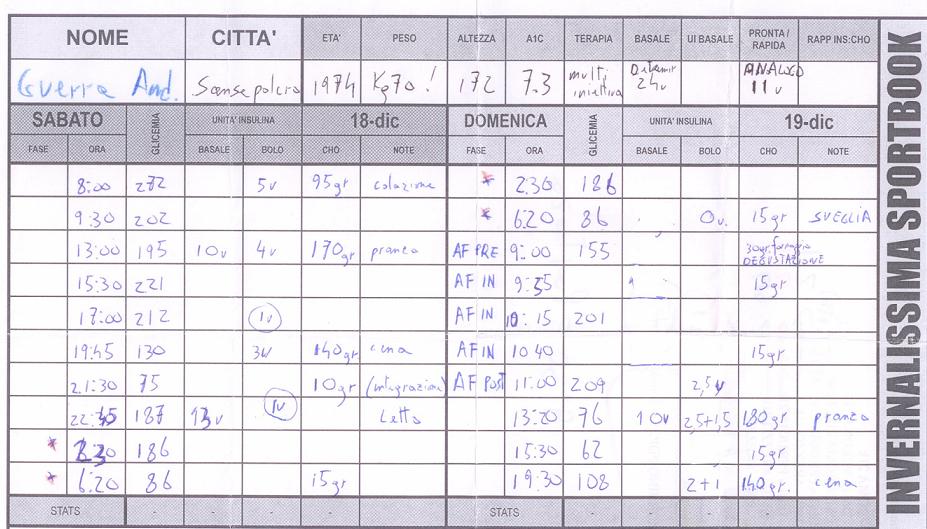 NOME CITTA' ETA' PESO ALTEZZA A1C TERAPIA BASALE UI BASALE PRONTA / RAPIDA RAPP INS:CHO
Guerra And. Sansepolcro 1974 Kg70! 172 7.3 multi iniettiva Detemir 24u ANALOGO 11u
SABATO GLICEMIA UNITA' INSULINA 18-dic DOMENICA GLICEMIA UNITA' INSULINA 19-dic
FASE ORA BASALE BOLO CHO NOTE FASE ORA BASALE BOLO CHO NOTE
8:00 272 5u 95gr colazione * 2:30 186
9:30 202 * 6:20 86 0u. 15gr SVEGLIA
13:00 195 10u 4u 170gr pranzo AF PRE 9:00 155 30gr formaggio DEGUSTAZIONE
15:30 221 AF IN 9:55 15gr
17:00 212 1u AF IN 10:15 201
19:45 130 3u 140gr cena AF IN 10 40 15gr
21:30 75 10gr (integrazione) AF POST 11:00 209 2,5u
22:45 187 13u 1u Letto 13:20 76 10u 2,5+1,5 180gr pranzo
* 2:30 186 15:30 62 15gr
* 6:20 86 15gr 19:30 108 2+1 140gr. cena
STATS - - - - - STATS - - - - -
INVERNALISSIMA SPORTBOOK